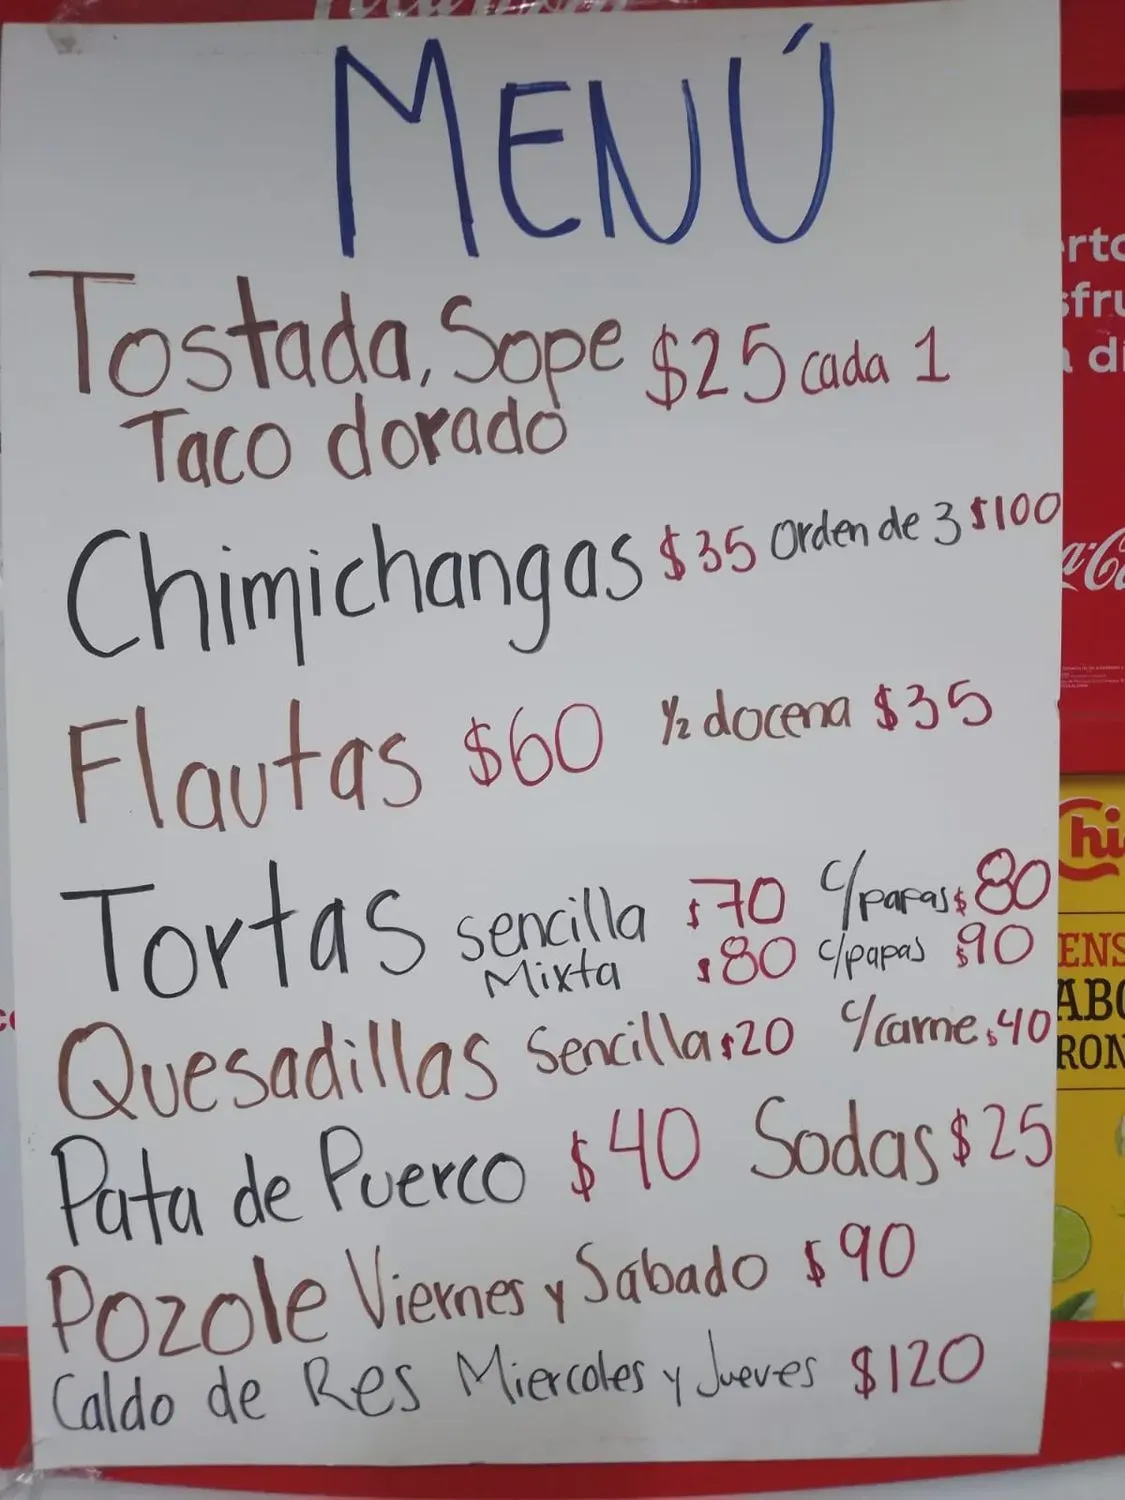 MENÚ
Tostada, Sope $25 cada 1
Taco dorado
Chimichangas $35 Orden de 3 $100
Flautas $60 ½ docena $35
Tortas sencilla $70 c/papas $80
Mixta $80 c/papas $90
Quesadillas Sencilla $20 c/carne $40
Pata de Puerco $40 Sodas $25
Pozole Viernes y Sabado $90
Caldo de Res Miercoles y Jueves $120